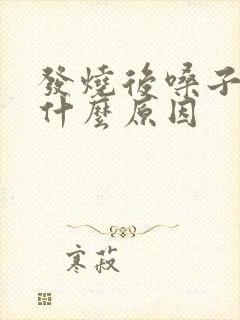 發燒後嗓子
什麼原因
寒菽